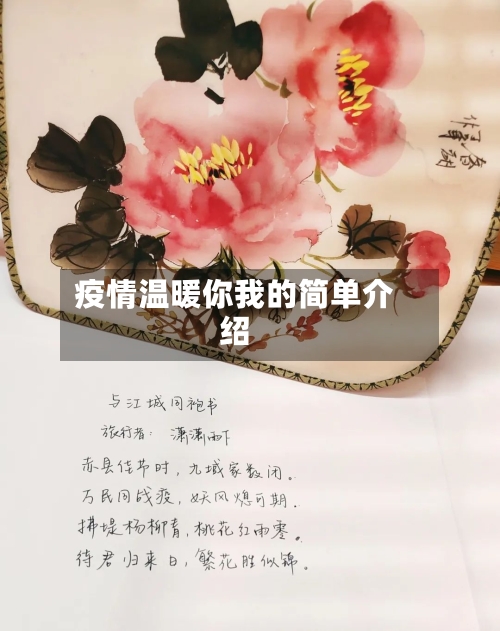 疫情温暖你我的简单介
绍
与江城同袍书
旅行者: 潇潇雨下
赤县佳节时,九域家数闭。
万民同战疫,妖风熄可期.
拂堤杨柳青,桃花红雨霁。
待君归来日,繁花胜似锦。